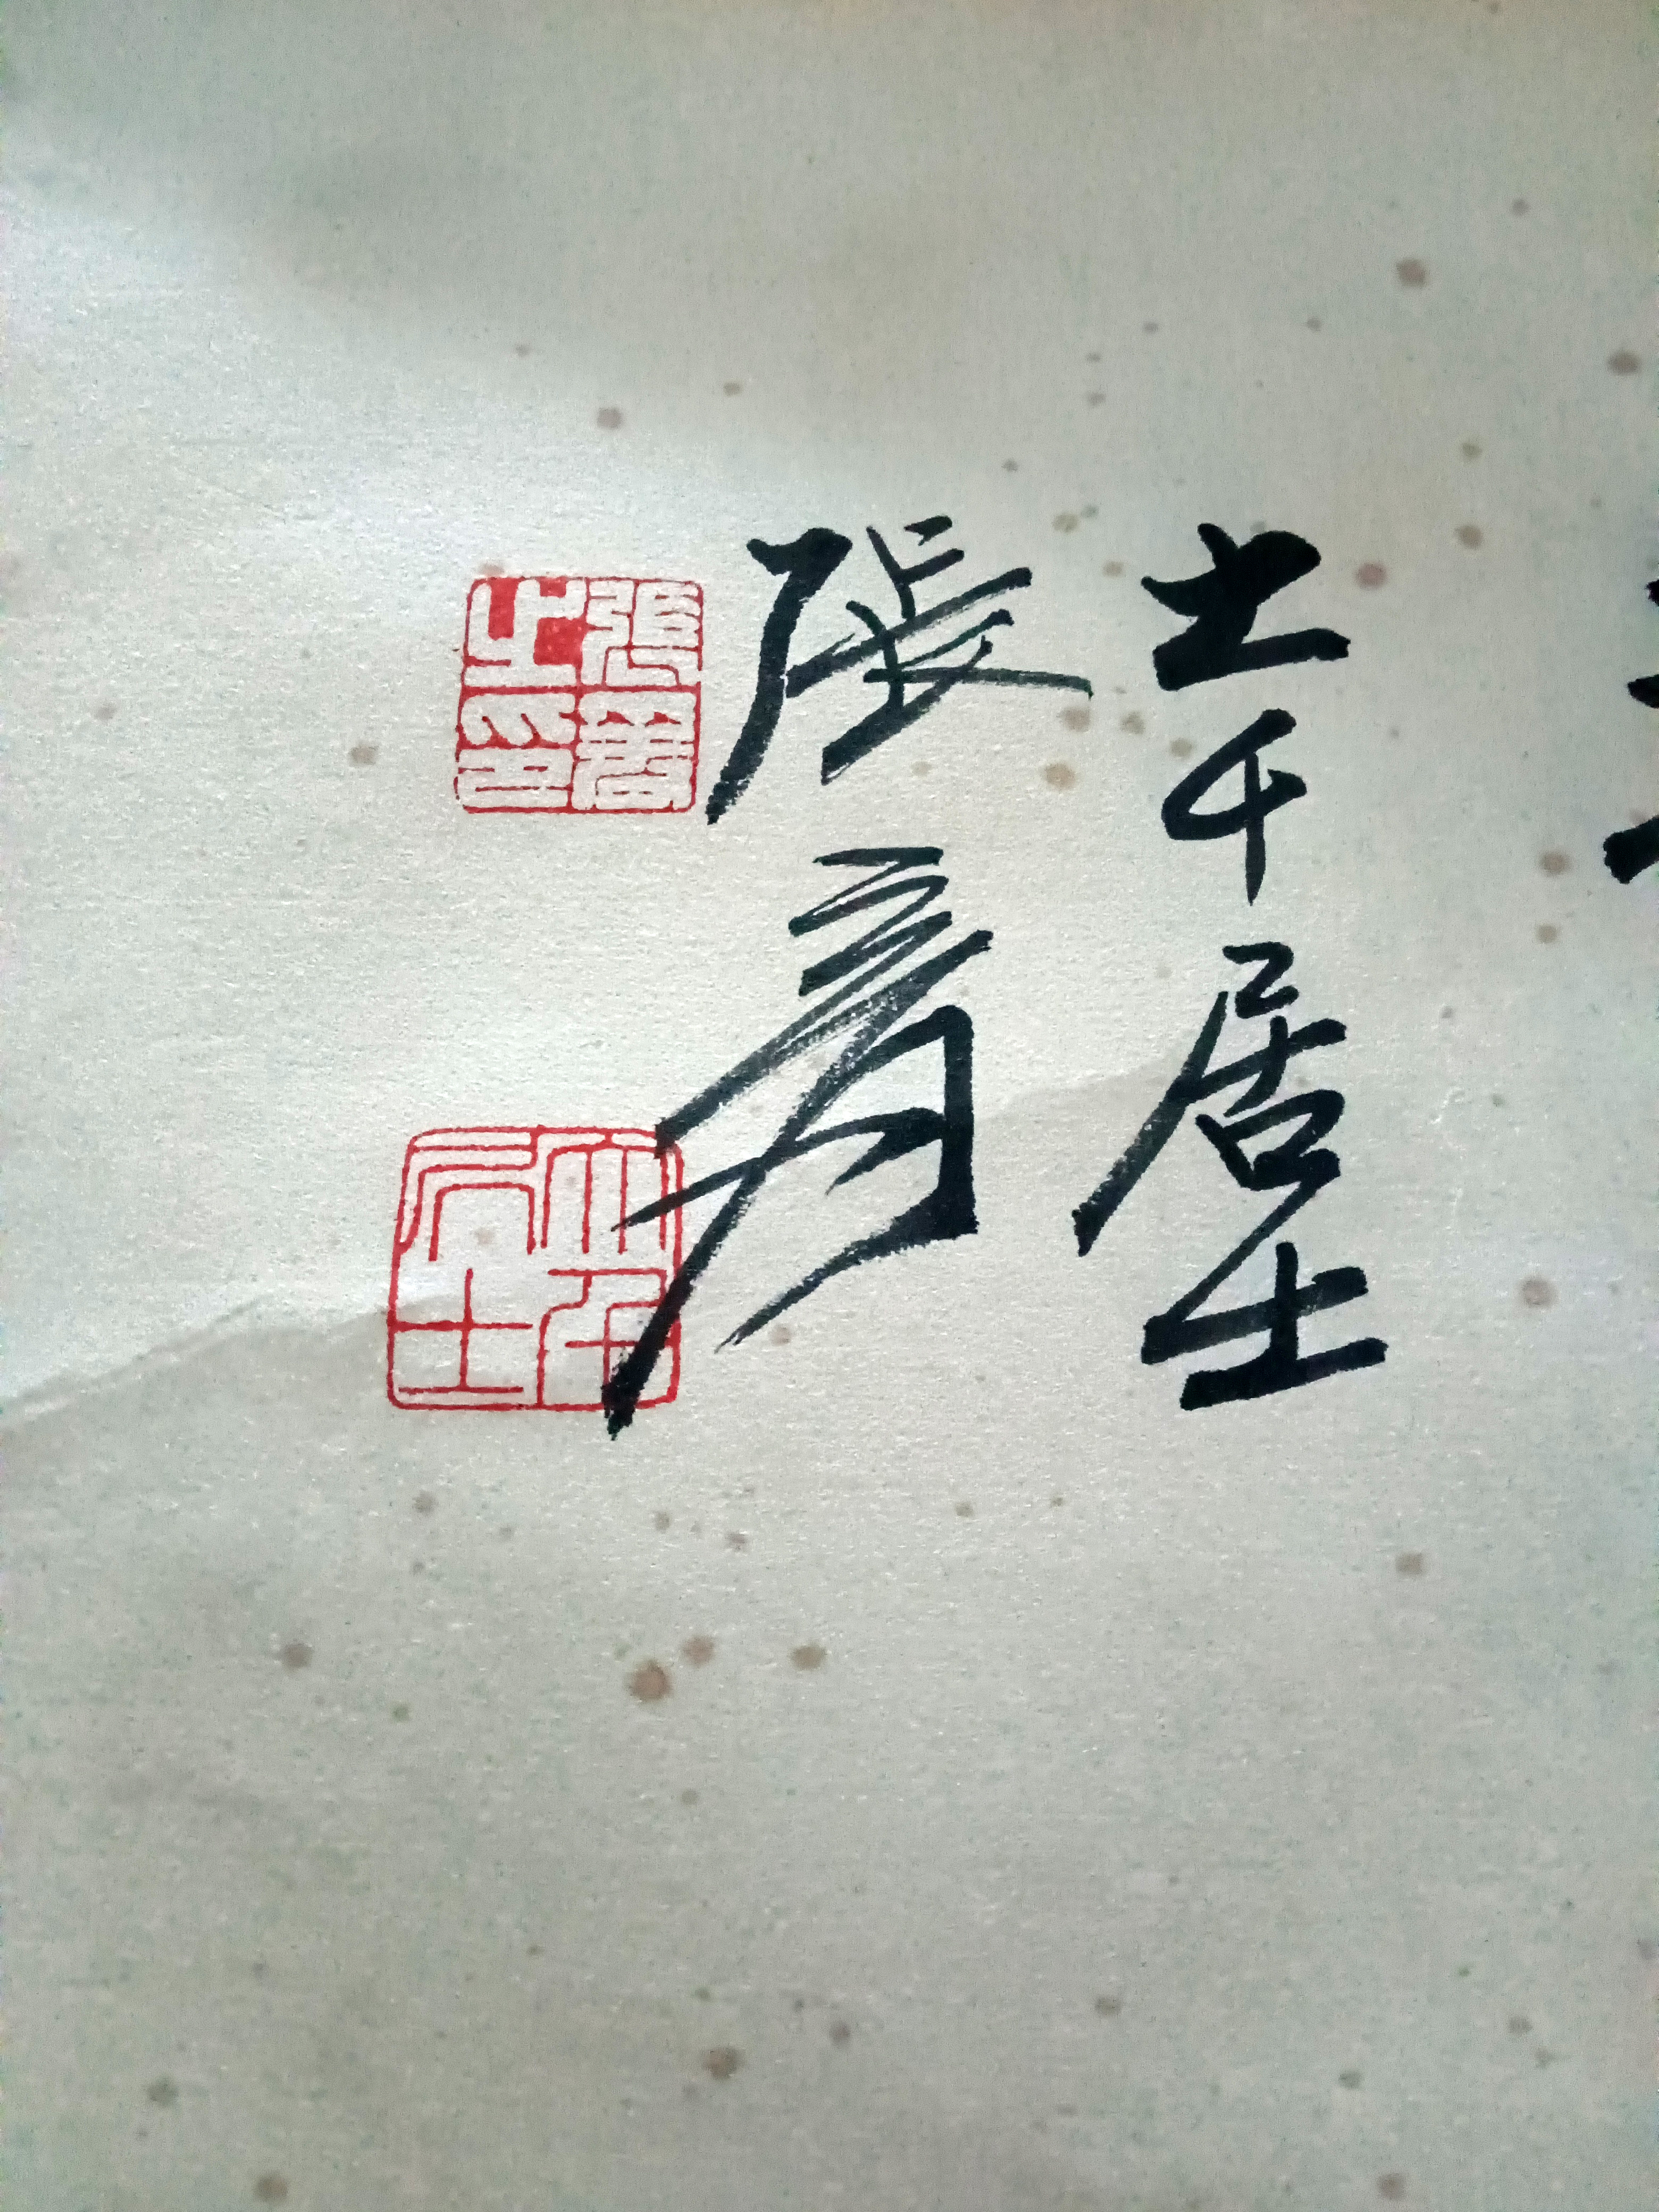 大千居士
張爰
張爰之印
大千居士